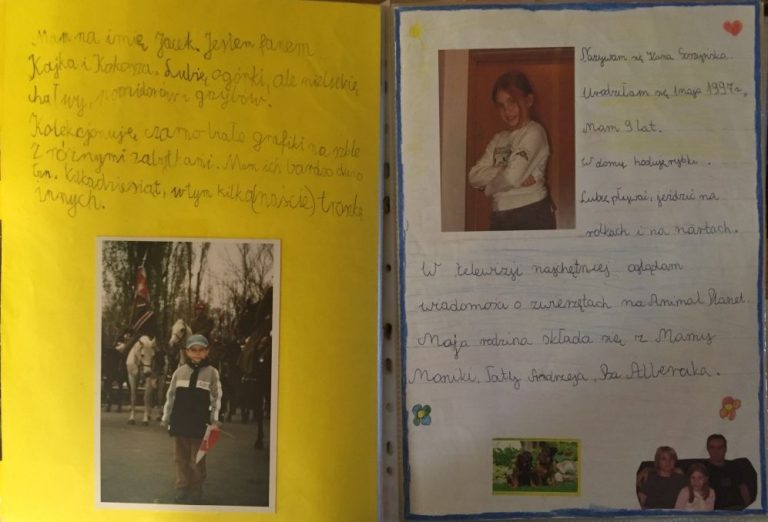 Mam na imię Jacek. Jestem fanem
Kajka i Kokosza. Lubię ogórki, ale nie lubię
chałwy, pomidorów i grzybów.
Kolekcjonuję czarno białe grafiki na szkle
z różnymi zabytkami. Mam ich bardzo dużo
tzn. kilkadziesiąt, w tym kilka(naście) trochę
innych.
Nazywam się Hania
Urodziłam się 1 maja 1997r.,
Mam 9 lat.
W domu hoduję rybki.
Lubię pływać, jeździć na
rolkach i na nartach.
W telewizji najchętniej oglądam
wiadomości o zwierzętach na Animal Planet.
Moja rodzina składa się z Mamy
Moniki, Taty Andrzeja, Psa